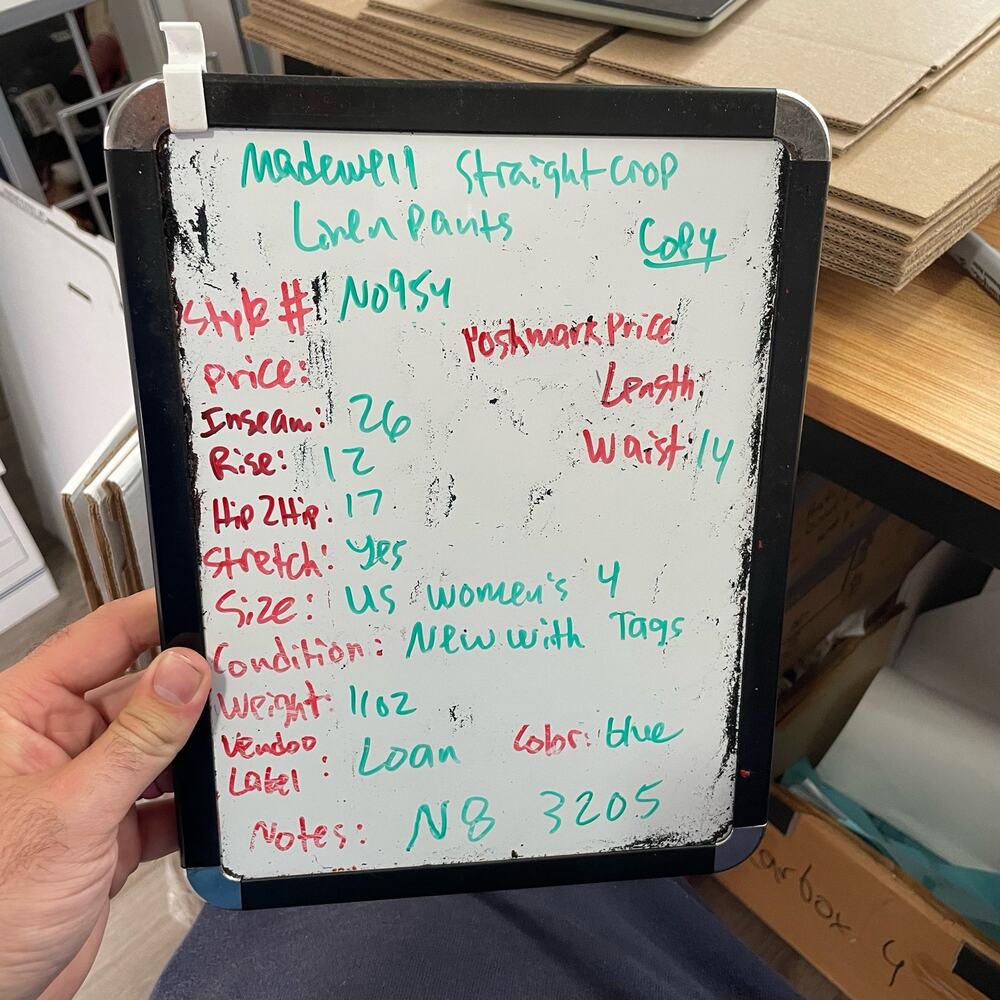 Madewell Straight crop
Linen Pants
Copy
Style # NO954
Poshmark Price
Price:
Length:
Inseam: 26
Waist: 14
Rise: 12
Hip2Hip: 17
Stretch: Yes
Size: US women's 4
Condition: New with Tags
Weight: 11oz
Vendoo
Label : Loan
Color: blue
Notes: N8 3205
4